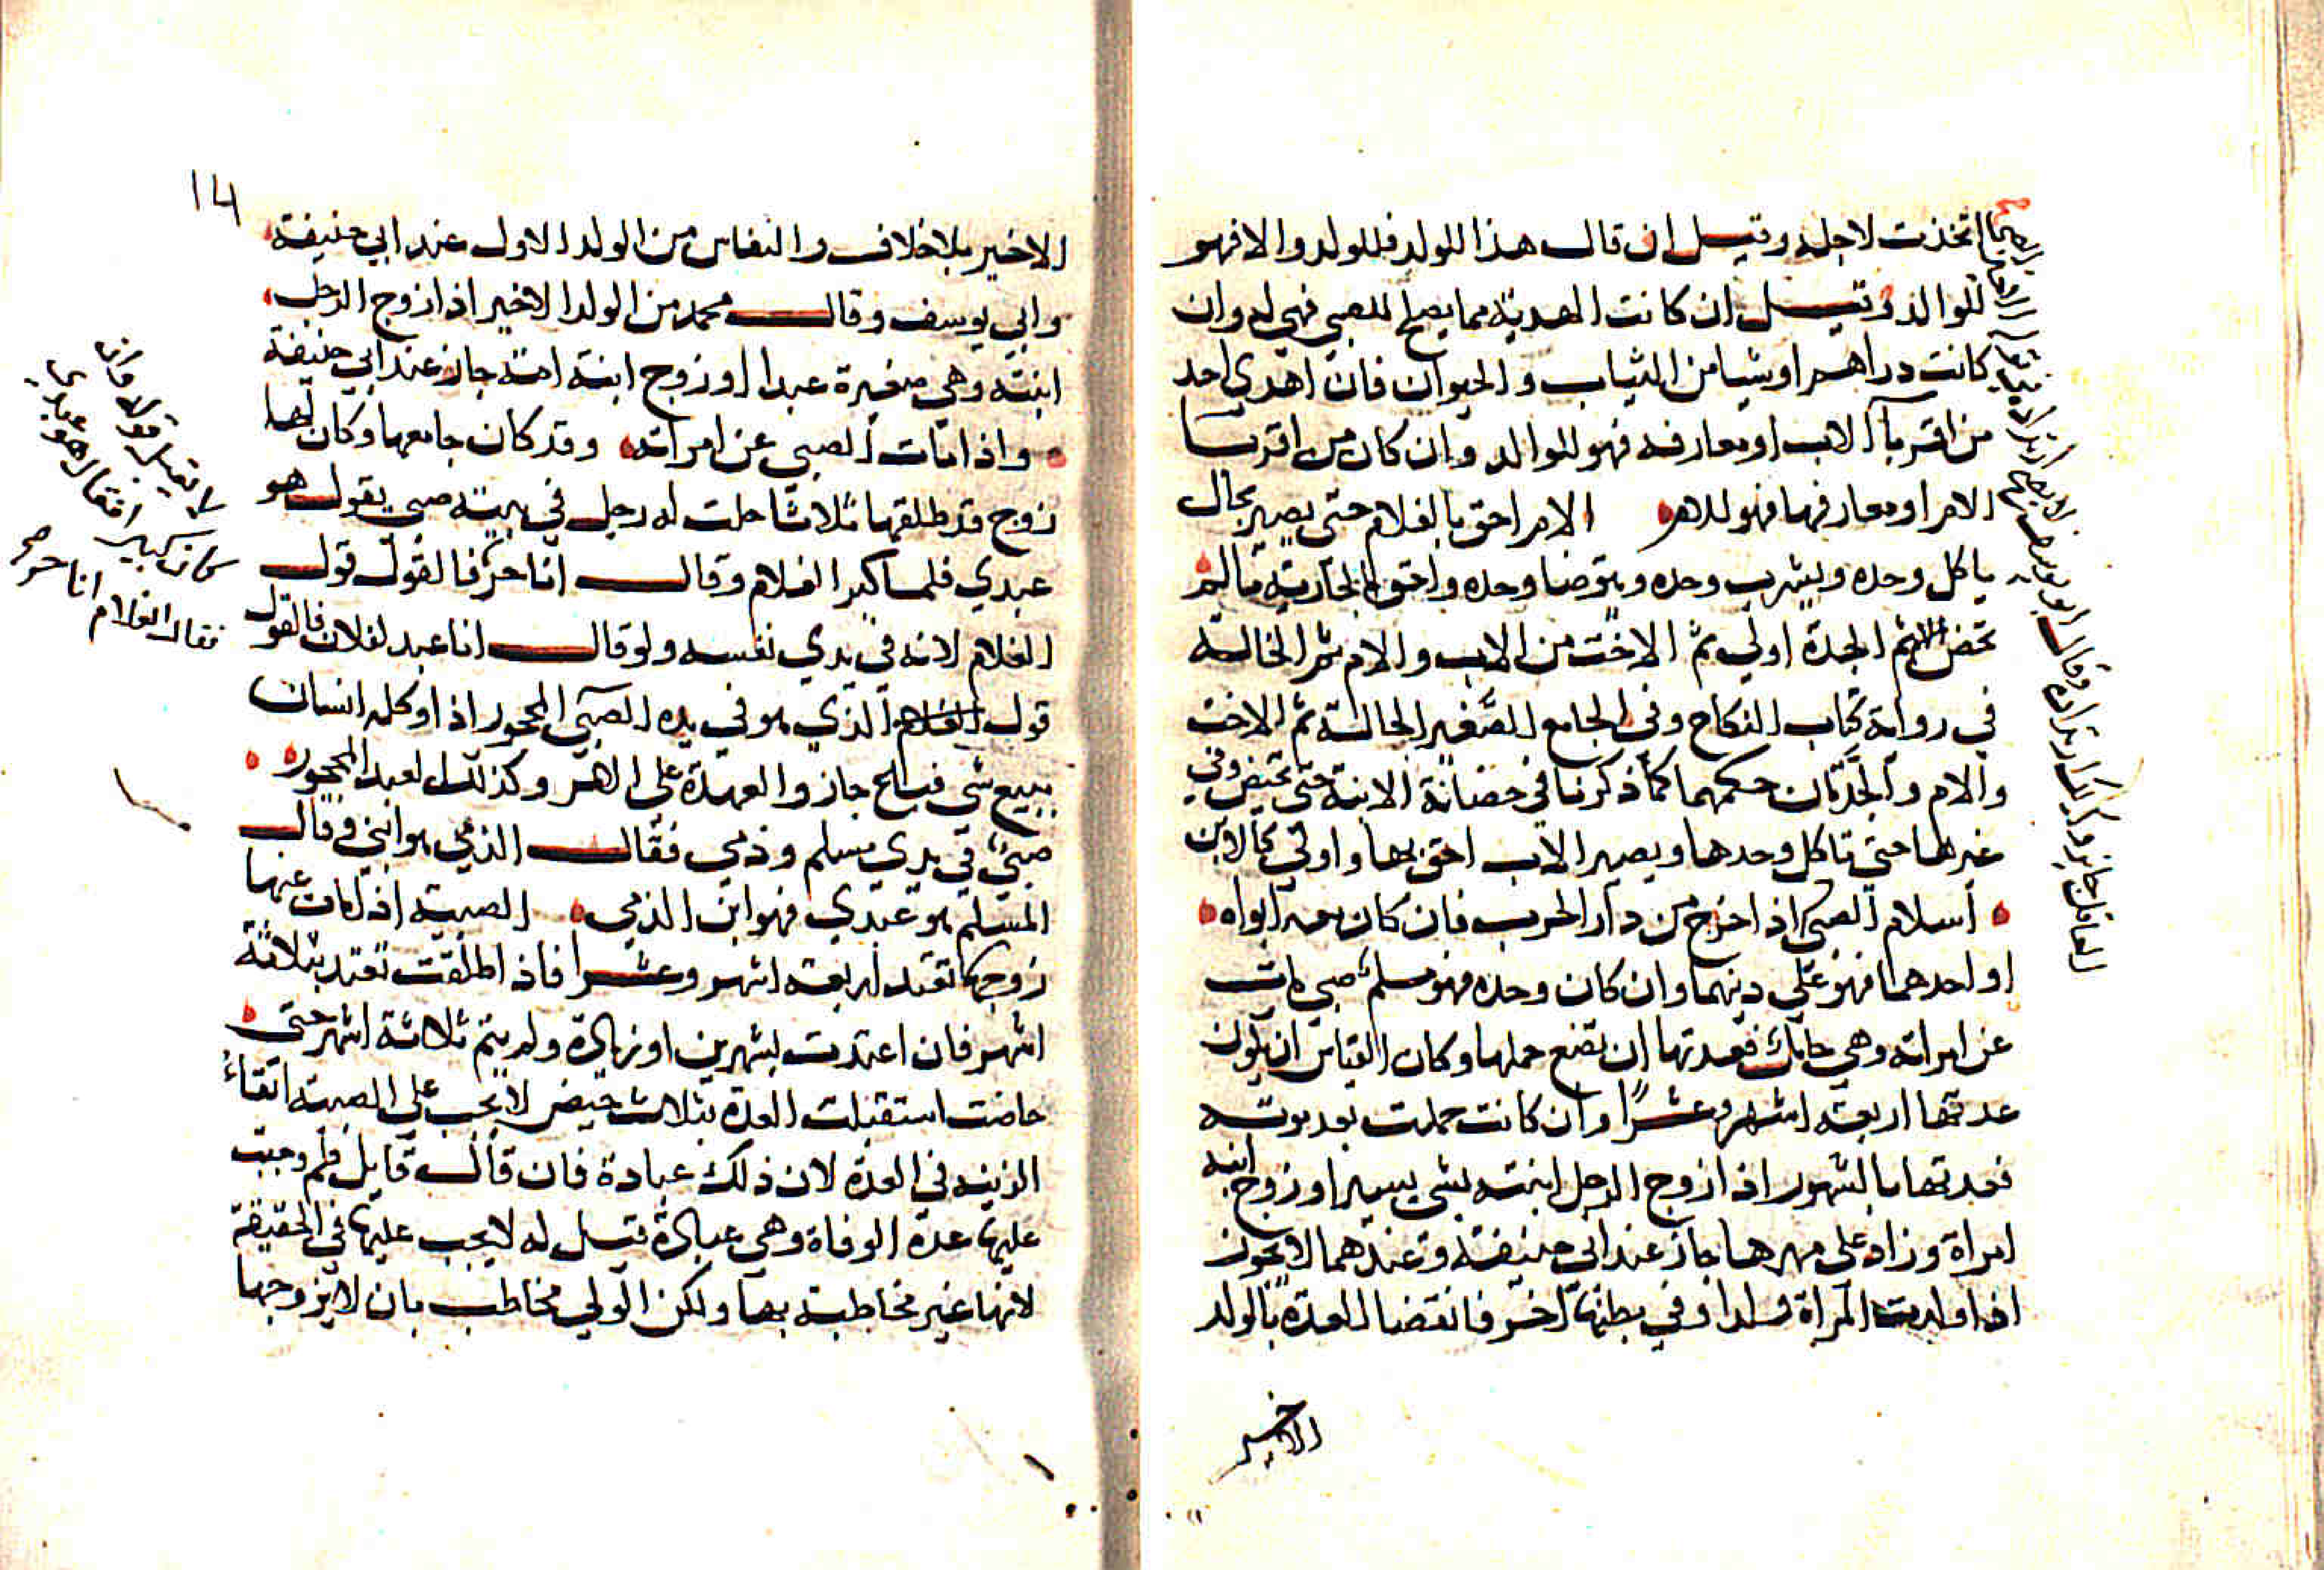 اتخذت لاجله وقيل ان قال هذا للولد فللولد والا فهو
للوالد وقيل ان كانت الهدية مما يصلح للصبي فهي له وان
كانت دراهم او شيا من الثياب والحيوان فان اهدى احد
من اقربآ الاب او معارفه فهو للوالد وان كان من اقربا
الام او معارفها فهو للام الام احق بالغلام حتى يصير بحال
ياكل وحده ويشرب وحده ويتوضا وحده واحق بالجارية مالم
تحض ثم الجدة اولى ثم الاخت من الاب والام ثم الخالة
في رواية كتاب النكاح وفي الجامع الصغير الخالة ثم الاخت
والام والجدتان حكمهما كما ذكرنا في حضانة الابنة حتى تحيض وفي
غيرها حتى تاكل وحدها ويصير الاب احق بها واولى كالابن
اسلام الصبي اذا خرج من دار الحرب فان كان معه ابواه
او احدهما فهو على دينهما وان كان وحده فهو مسلم صبي مات
عن امراته وهي حامل فعدتها ان تضع حملها وكان القياس ان يكون
عدتها اربعة اشهر وعشرًا وان كانت حملت بعد موته
فعدتها بالشهور اذا زوج الرجل ابنته بشي يسير او زوج ابنه
امراة وزاد على مهرها جاز عند ابي حنيفة وعندهما لا يجوز
اذا ولدت المراة ولدا وفي بطنها آخر فانقضا العدة بالولد
الاخير
العاقل جايز وكذلك ارتداده وقال ابو يوسف
14
الاخير بلا خلاف والنفاس من الولد الاول عند ابي حنيفة
وابي يوسف وقال محمد من الولد الاخير اذا زوج الرجل
ابنته وهي صغيرة عبدا او زوج ابنه امة جاز عند ابي حنيفة
واذا مات الصبي عن امراته وقد كان جامعها وكان لها
زوج قد طلقها ثلاثا حلت له رجل في بيته صبي يقول هو
عبدي فلما كبر الغلام وقال انا حرّ فالقول قول
الغلام لانه في يدي نفسه ولو قال انا عبد لفلان فالقول
قول الذي هو في يده الصبي المحجور اذا وكله انسان
ببيع شي فباع جاز والعهدة على الامر وكذلك العبد المحجور
صبي في يدي مسلم وذمي فقال الذمي هو ابني وقال
المسلم هو عبدي فهو ابن الذمي الصبية اذا مات عنها
زوجها تعتد اربعة اشهر وعشرا فاذا طلقت تعتد بثلاثة
اشهر فان اعتدت بشهرين او زيادة ولم يتم ثلاثة اشهر حتى
حاضت استقبلت العدة بثلاث حيض لا يجب على الصبية اتقاء
الزينة في العدة لان ذلك عبادة فان قال قايل فلم وجبت
عليها عدة الوفاة وهي عبادة قيل له لا يجب عليها في الحقيقة
لانها غير مخاطبة بها ولكن الولي مخاطب بان لا يزوجها
فقال الغلام انا حر صح